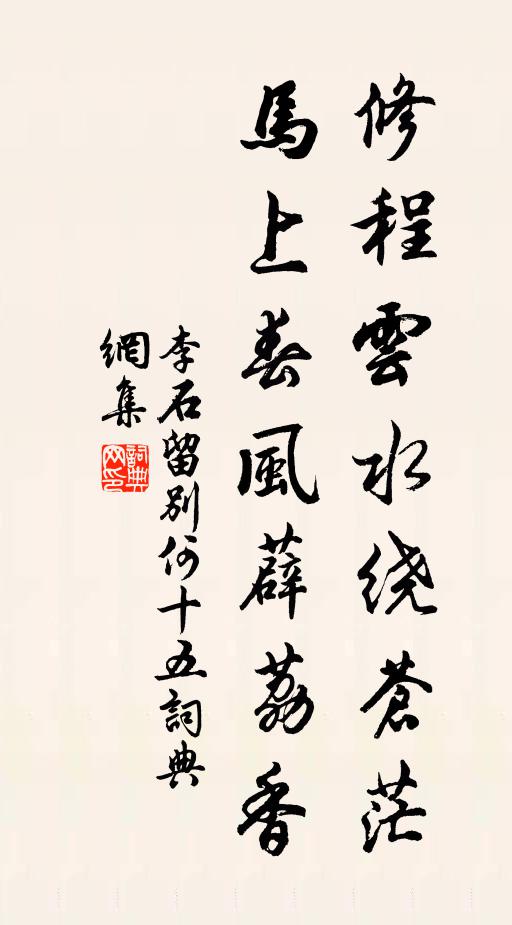 修程雲水绕蒼茫
馬上春風薜荔香
李石留別何十五詞典
網集
詞典網印